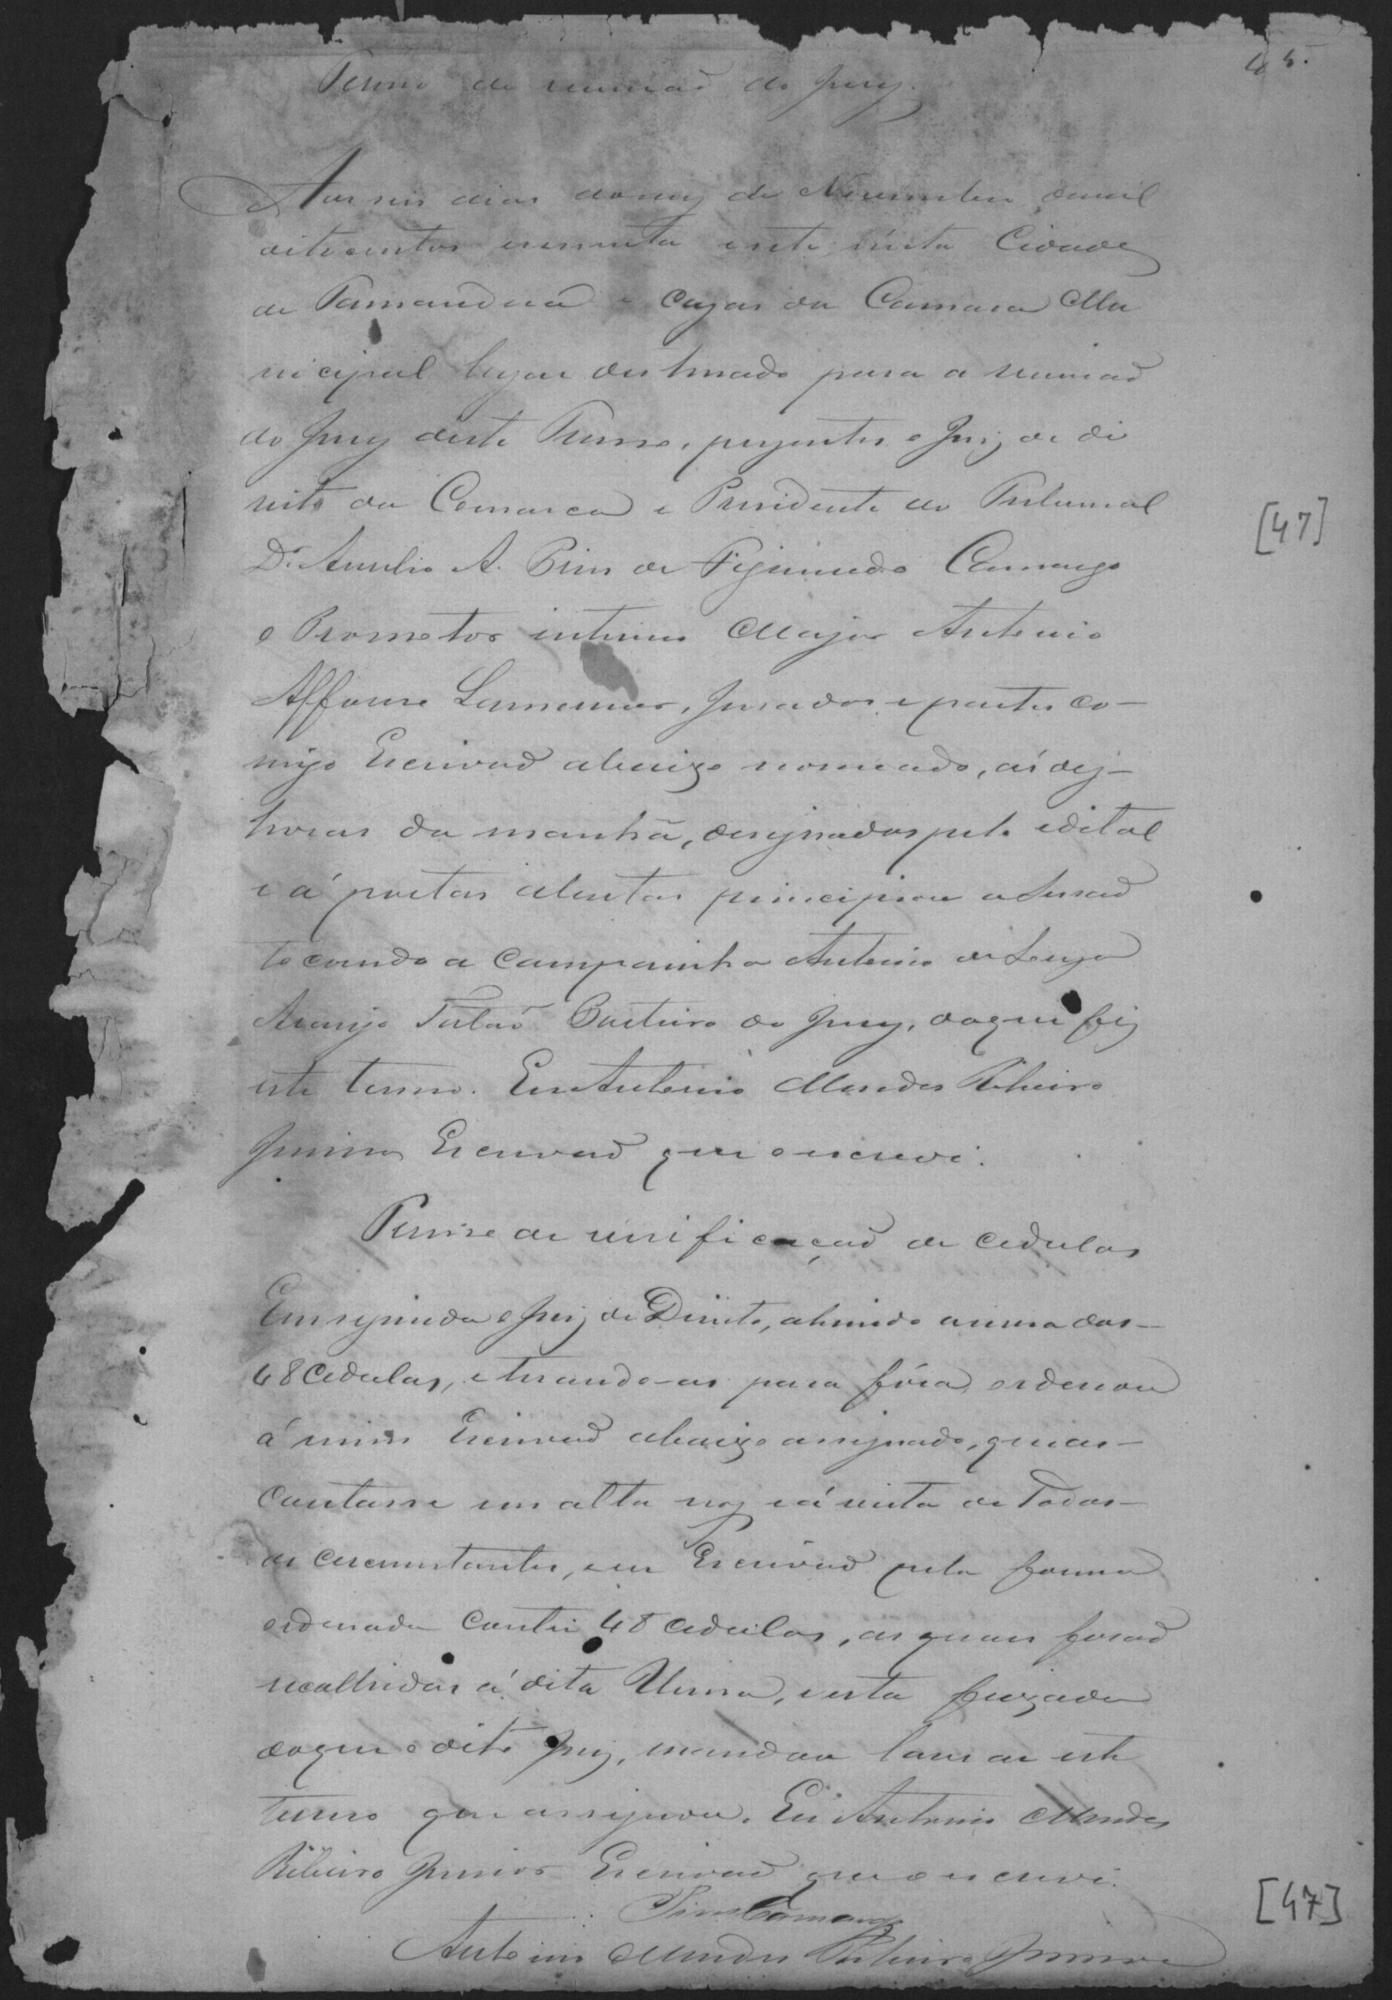 45.
Termo de reunião do Jury.
Aos seis dias do mez de Novembro de mil
oitocentos e sessenta e sete, nesta Cidade
de Tamanduá e cazas da Camara Mu
nicipal lugar destinado para a reunião
do Jury deste Termo, prezentes o Juiz de di
reito da Comarca e Presidente do Tribunal
Dr. Aurelio A. Pires de Figueiredo Camargo
o Promotor interino Major Antonio
Affonso Lamounier, Jurados e partes co-
migo Escrivaõ abaixo nomeado, ás dez-
horas da manhã, designadas pelo edital
e á portas abertas principiou a Sessaõ
tocando a campainha Antonio de Souza
Araujo Porteiro do Jury, do que fiz
este termo. Eu Antonio Mendes Ribeiro
Junior Escrivaõ que o escrevi.
Termo de verificaçaõ de cedulas
Em seguida o Juiz de Direito, abrindo a urna das-
48 cedulas, e tirando-as para fóra, ordenou
á mim Escrivaõ abaixo assignado, que as-
contasse em alta voz e á vista de todos-
os circunstantes, e eu Escrivaõ pela forma
ordenada contei 48 cedulas, as quaes foraõ
recolhidas á dita Urna, e esta feixada
do que o dito Juiz, mandou lavrar este
termo que assignou. Eu Antonio Mendes
Ribeiro Junior Escrivaõ que o escrevi.
Pires Camargo
Antonio Mendes Ribeiro Junior
[47]
[47]